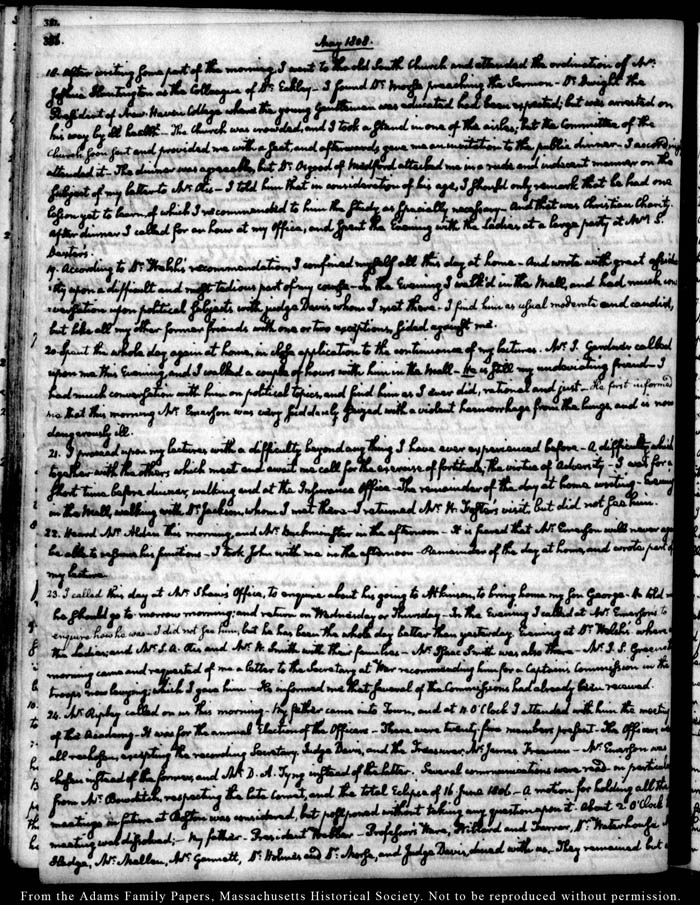 386.
May 1808.
18. After writing some part of the morning I went to the old South Church and attended the ordination of Mr.
Joshua Huntington as the Colleague of Dr. Eckley - I found Dr. Morse preaching the Sermon - Dr. Dwight the
President of New Haven College where the young Gentleman was educated had been expected, but was arrested on
his way by ill health - The Church was crowded, and I took a stand in one of the aisles; but the Committee of the
Church soon sent and provided me with a seat, and afterwards gave me an invitation to the public dinner - I accordingly
attended it - The dinner was agreeable, but Dr. Osgood of Medford attacked me in a rude and indecent manner on the
subject of my letter to Mr. Otis - I told him that in consideration of his age, I should only remark that he had one
lesson yet to learn, of which I recommended to him the study, as specially necessary - And that was Christian Charity.
After dinner I called for an hour at my Office, and spent the Evening with the Ladies, at a large party at Mr. S.
Dexter's.
19. According to Dr. Welsh's recommendation, I confined myself all this day at home - And wrote with great assidu-
ity upon a difficult and most tedious part of my course - In the Evening I walk'd in the Mall, and had much con-
versation upon political subjects with judge Davis whom I met there - I find him as usual moderate and candid,
but like all my other former friends with one or two exceptions, sided against me.
20. Spent the whole day again at home, in close application to the continuance of my lectures. Mr. J. Gardner called
upon me this Evening, and I walked a couple of hours with him in the Mall - He is still my undeviating friend - I
had much conversation with him on political topics, and find him as I ever did, rational and just - He first informed
me that this morning Mr. Emerson was very suddenly seized with a violent haemorrhage from the lungs, and is now
dangerously ill.
21. I proceed upon my lectures with a difficulty beyond any thing I have ever experienced before - A difficulty which
together with the others which meet and await me call for the exercise of fortitude, the virtue of Adversity - I was for a
short time before dinner, walking and at the Insurance Office - The remainder of the day at home, writing - Evening
in the Mall, walking with Dr. Jackson, whom I met there - I returned Mr. W. Foster's visit, but did not see him.
22. Heard Mr. Alden this morning, and Mr. Buckminster in the afternoon - It is feared that Mr. Emerson will never again
be able to resume his functions - I took John with me in the afternoon - Remainder of the day at home, and wrote part of
my lecture.
23. I called this day at Mr. Shaw's Office, to enquire about his going to Atkinson, to bring home my Son George - He told me
he should go to-morrow morning; and return on Wednesday or Thursday - In the Evening I called at Mr. Emerson's to
enquire how he was - I did not see him, but he has been the whole day better than yesterday. Evening at Dr. Welsh's where
the Ladies; and Mr. S. A. Otis and Mr. W. Smith with their families - Mr. Isaac Smith was also there - Mr. J. S.
morning came and requested of me a letter to the Secretary at War recommending him for a Captain's Commission in the
troops now levying; which I gave him - He informed me that several of the Commissions had already been received.
24. Mr. Ripley called on us this morning - My father came into Town, and at 11 O'Clock I attended with him the meeting
of the Academy - It was for the annual Election of the Officers - There were twenty-five members present - The Officers were
all rechosen, excepting the recording Secretary, Judge Davis, and the Treasurer, Mr. James Freeman - Mr. Emerson was
chosen instead of the former, and Mr. D. A. Tyng instead of the latter. Several communications were read - in particular
from Mr. Bowditch, respecting the late Comet, and the total Eclipse of 16 June 1806 - A motion for holding all the
meetings in future at Boston was considered, but postponed without taking any question upon it. About 2 O'Clock the
meeting was dissolved; - My father - President Webber - Professors Ware, Willard and Farrar, Dr. Waterhouse
Hedge, Mr. Mellen, Mr. Gannett, Dr. Holmes and Dr. Morse, and Judge Davis, dined with us. They remained but a
From the Adams Family Papers, Massachusetts Historical Society. Not to be reproduced without permission.